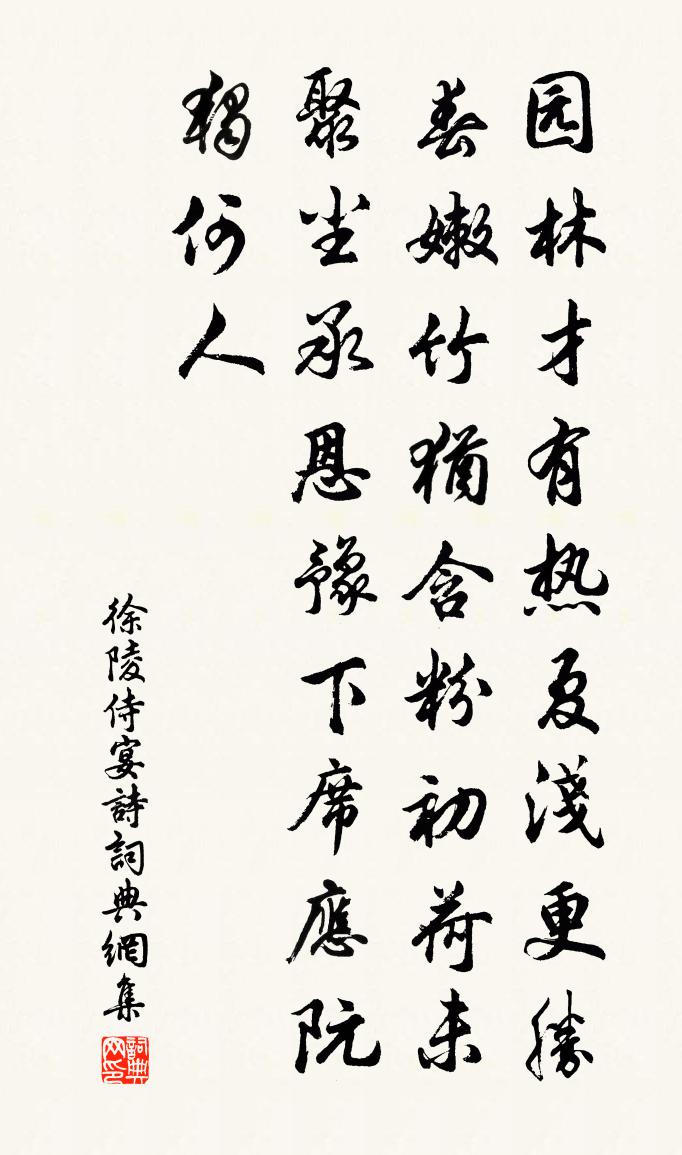 园林才有热夏淺更勝
春嫩竹猶含粉初荷未
聚尘承恩豫下席應阮
獨何人
徐陵侍宴詩詞典網集
詞典网印